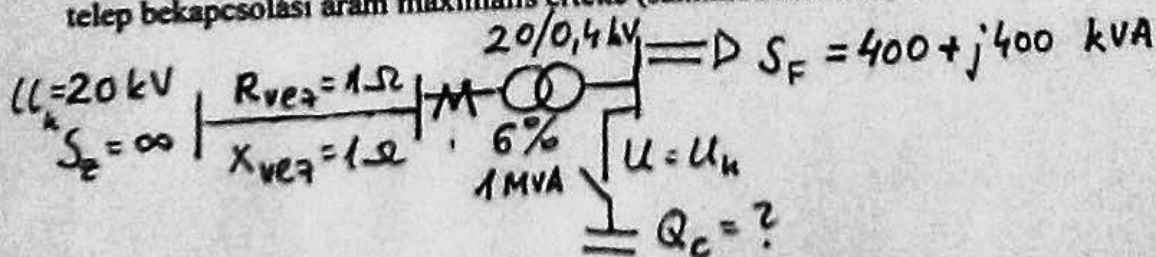 telep bekapcsolási áram maximális értéke
20/0,4 kV
S_F = 400 + j400 kVA
U_k = 20 kV
R_vez = 1Ω
S_z = ∞
X_vez = 1Ω
6%
1 MVA
U = U_n
Q_c = ?